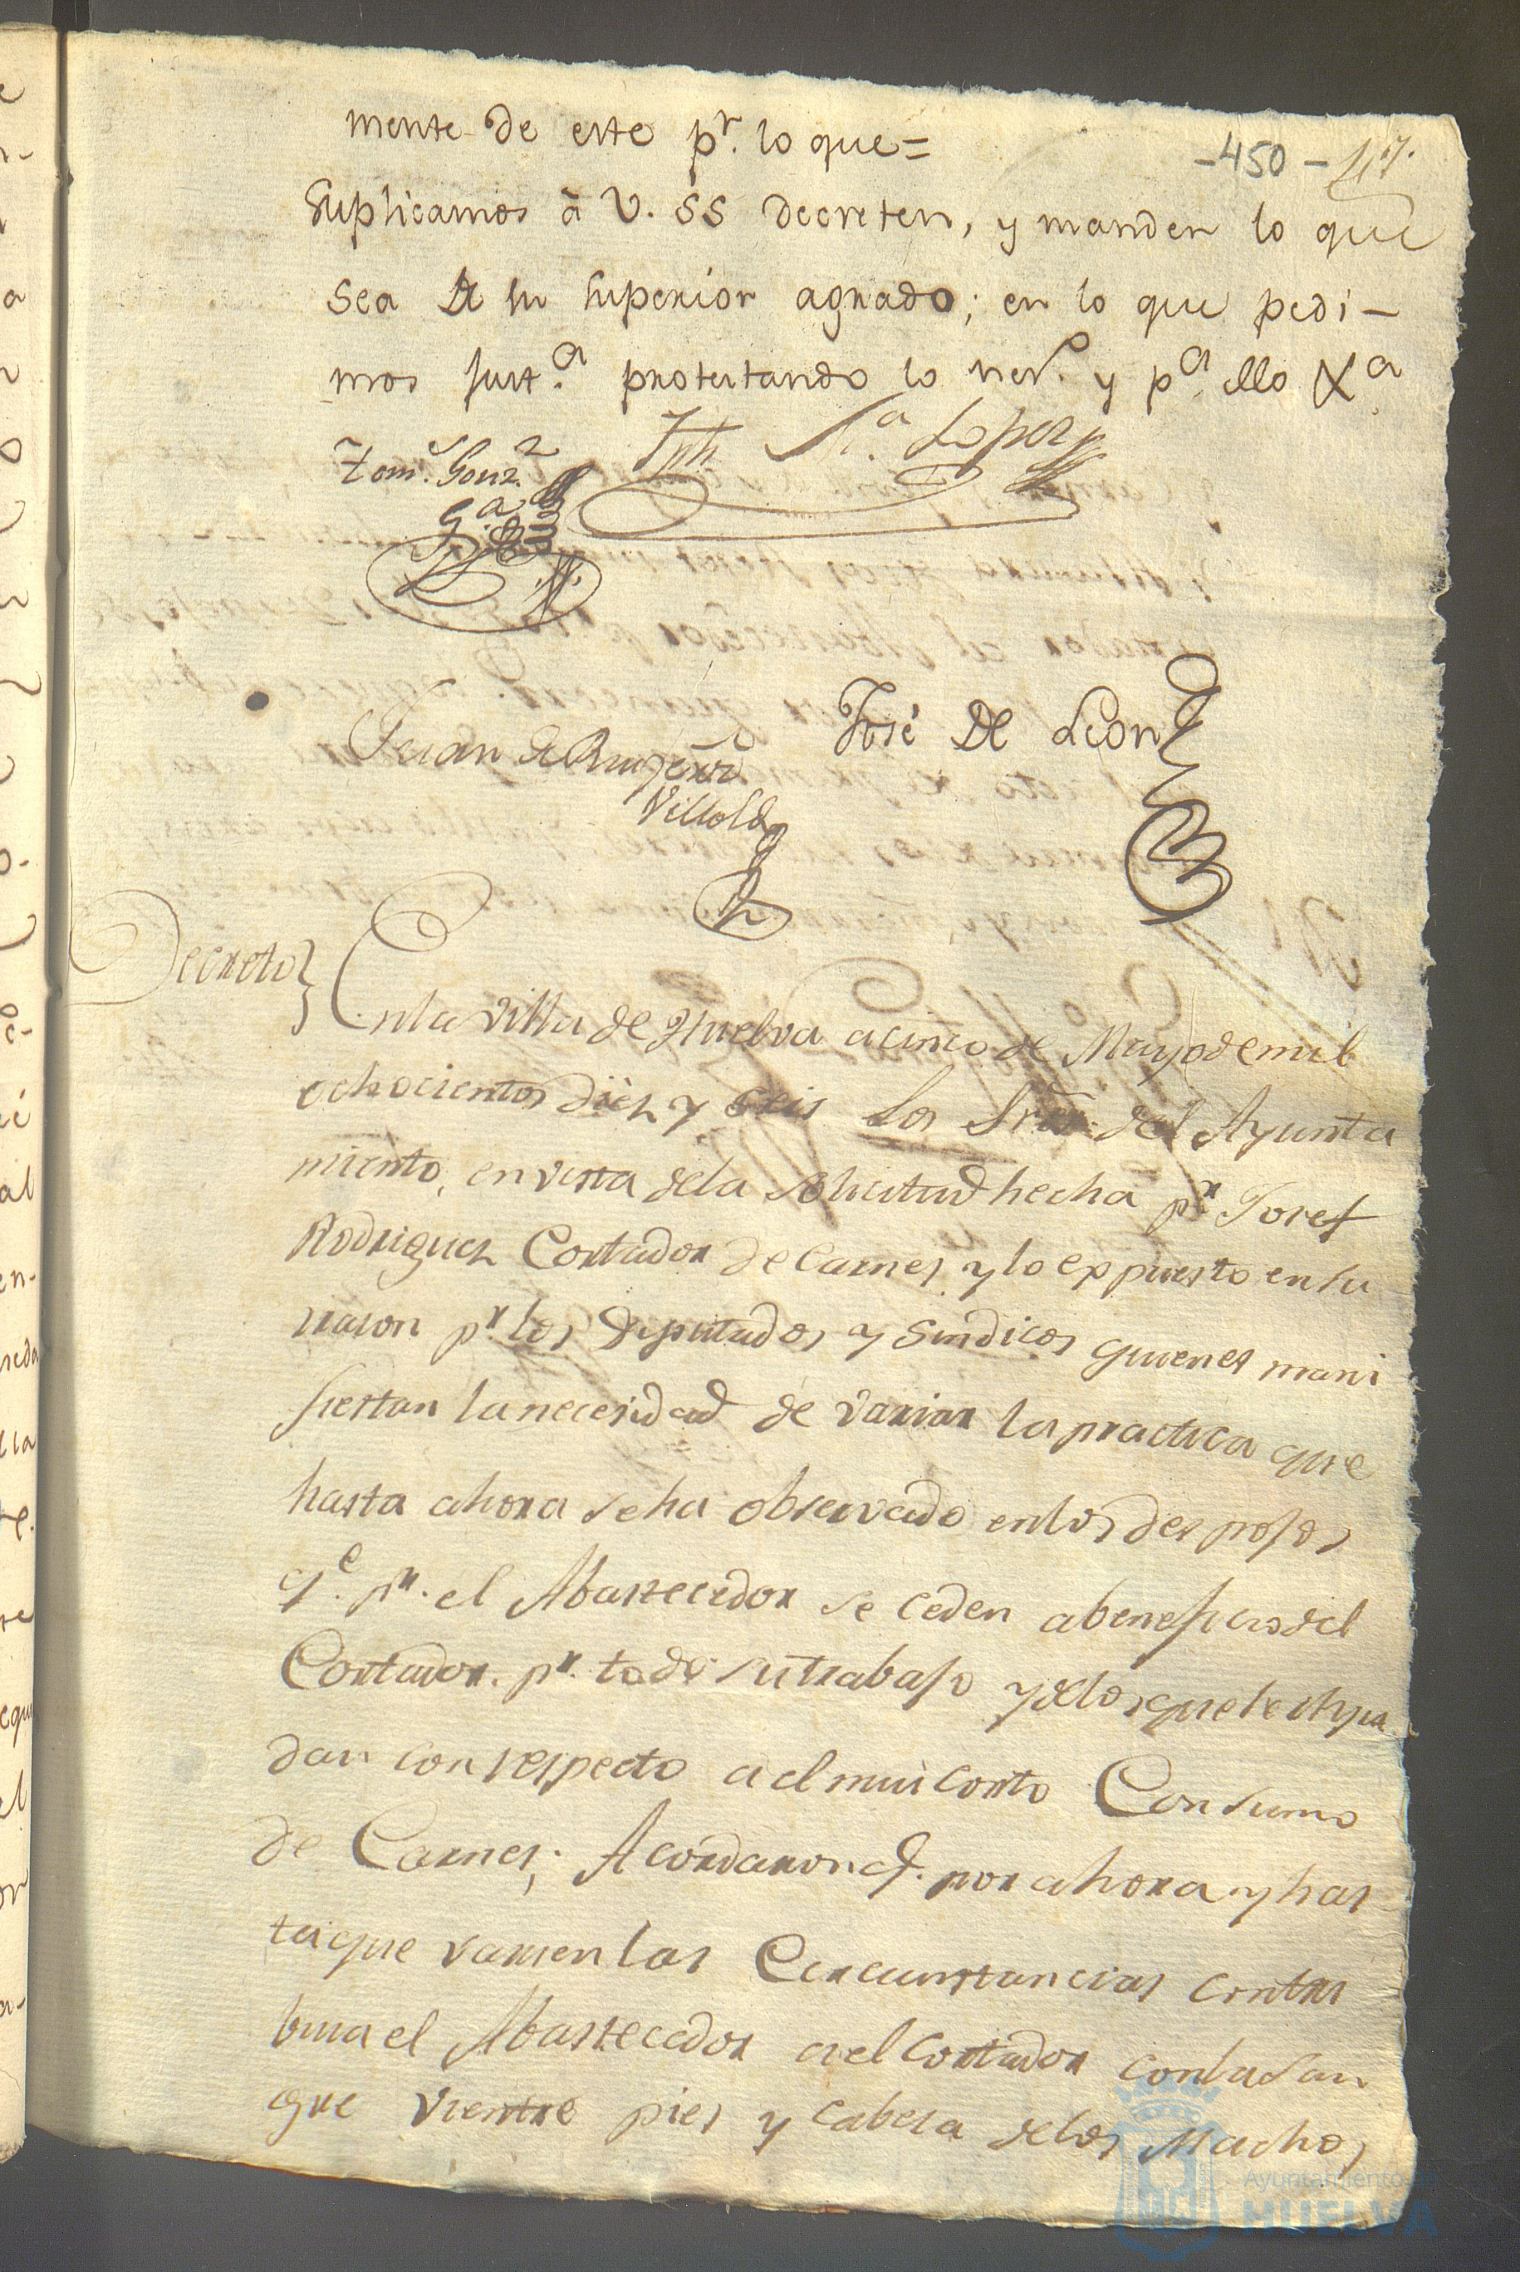 mente de este pr. lo que=
-450- 47.
Suplicamos â V. SS decreten, y manden lo que
sea de su superior agrado; en lo que pedi-
mos just.a protestando lo nes.o y p.a ello Xa
Tom.s Gonz.z Jph M.a Lopez
G.a
José De Leon
Juan de
Villoldo
Decreto} En la Villa de Huelva a cinco de Mayo de mil
ochocientos diez y seis Los Sres. del Ayunta
miento, en vista de la solicitud hecha pr Josef
Rodriguez Cortador de Carnes y lo expuesto en su
razon pr los Diputados y Sindicos quienes mani
fiestan la necesidad de variar la practica que
hasta ahora se ha observado en los despojos
qe. pr. el Abastecedor se ceden a beneficio del
Cortador. pr. todo su trabajo y de los que le ayu
dan con respecto a el mui corto Consumo
de Carnes; Acordaron q. por ahora y has
ta que varien las Circunstancias contri
bua el Abastecedor a el Cortador con la San
gre vientre pies y cabeza de los Machos
Ayuntamiento de
HUELVA